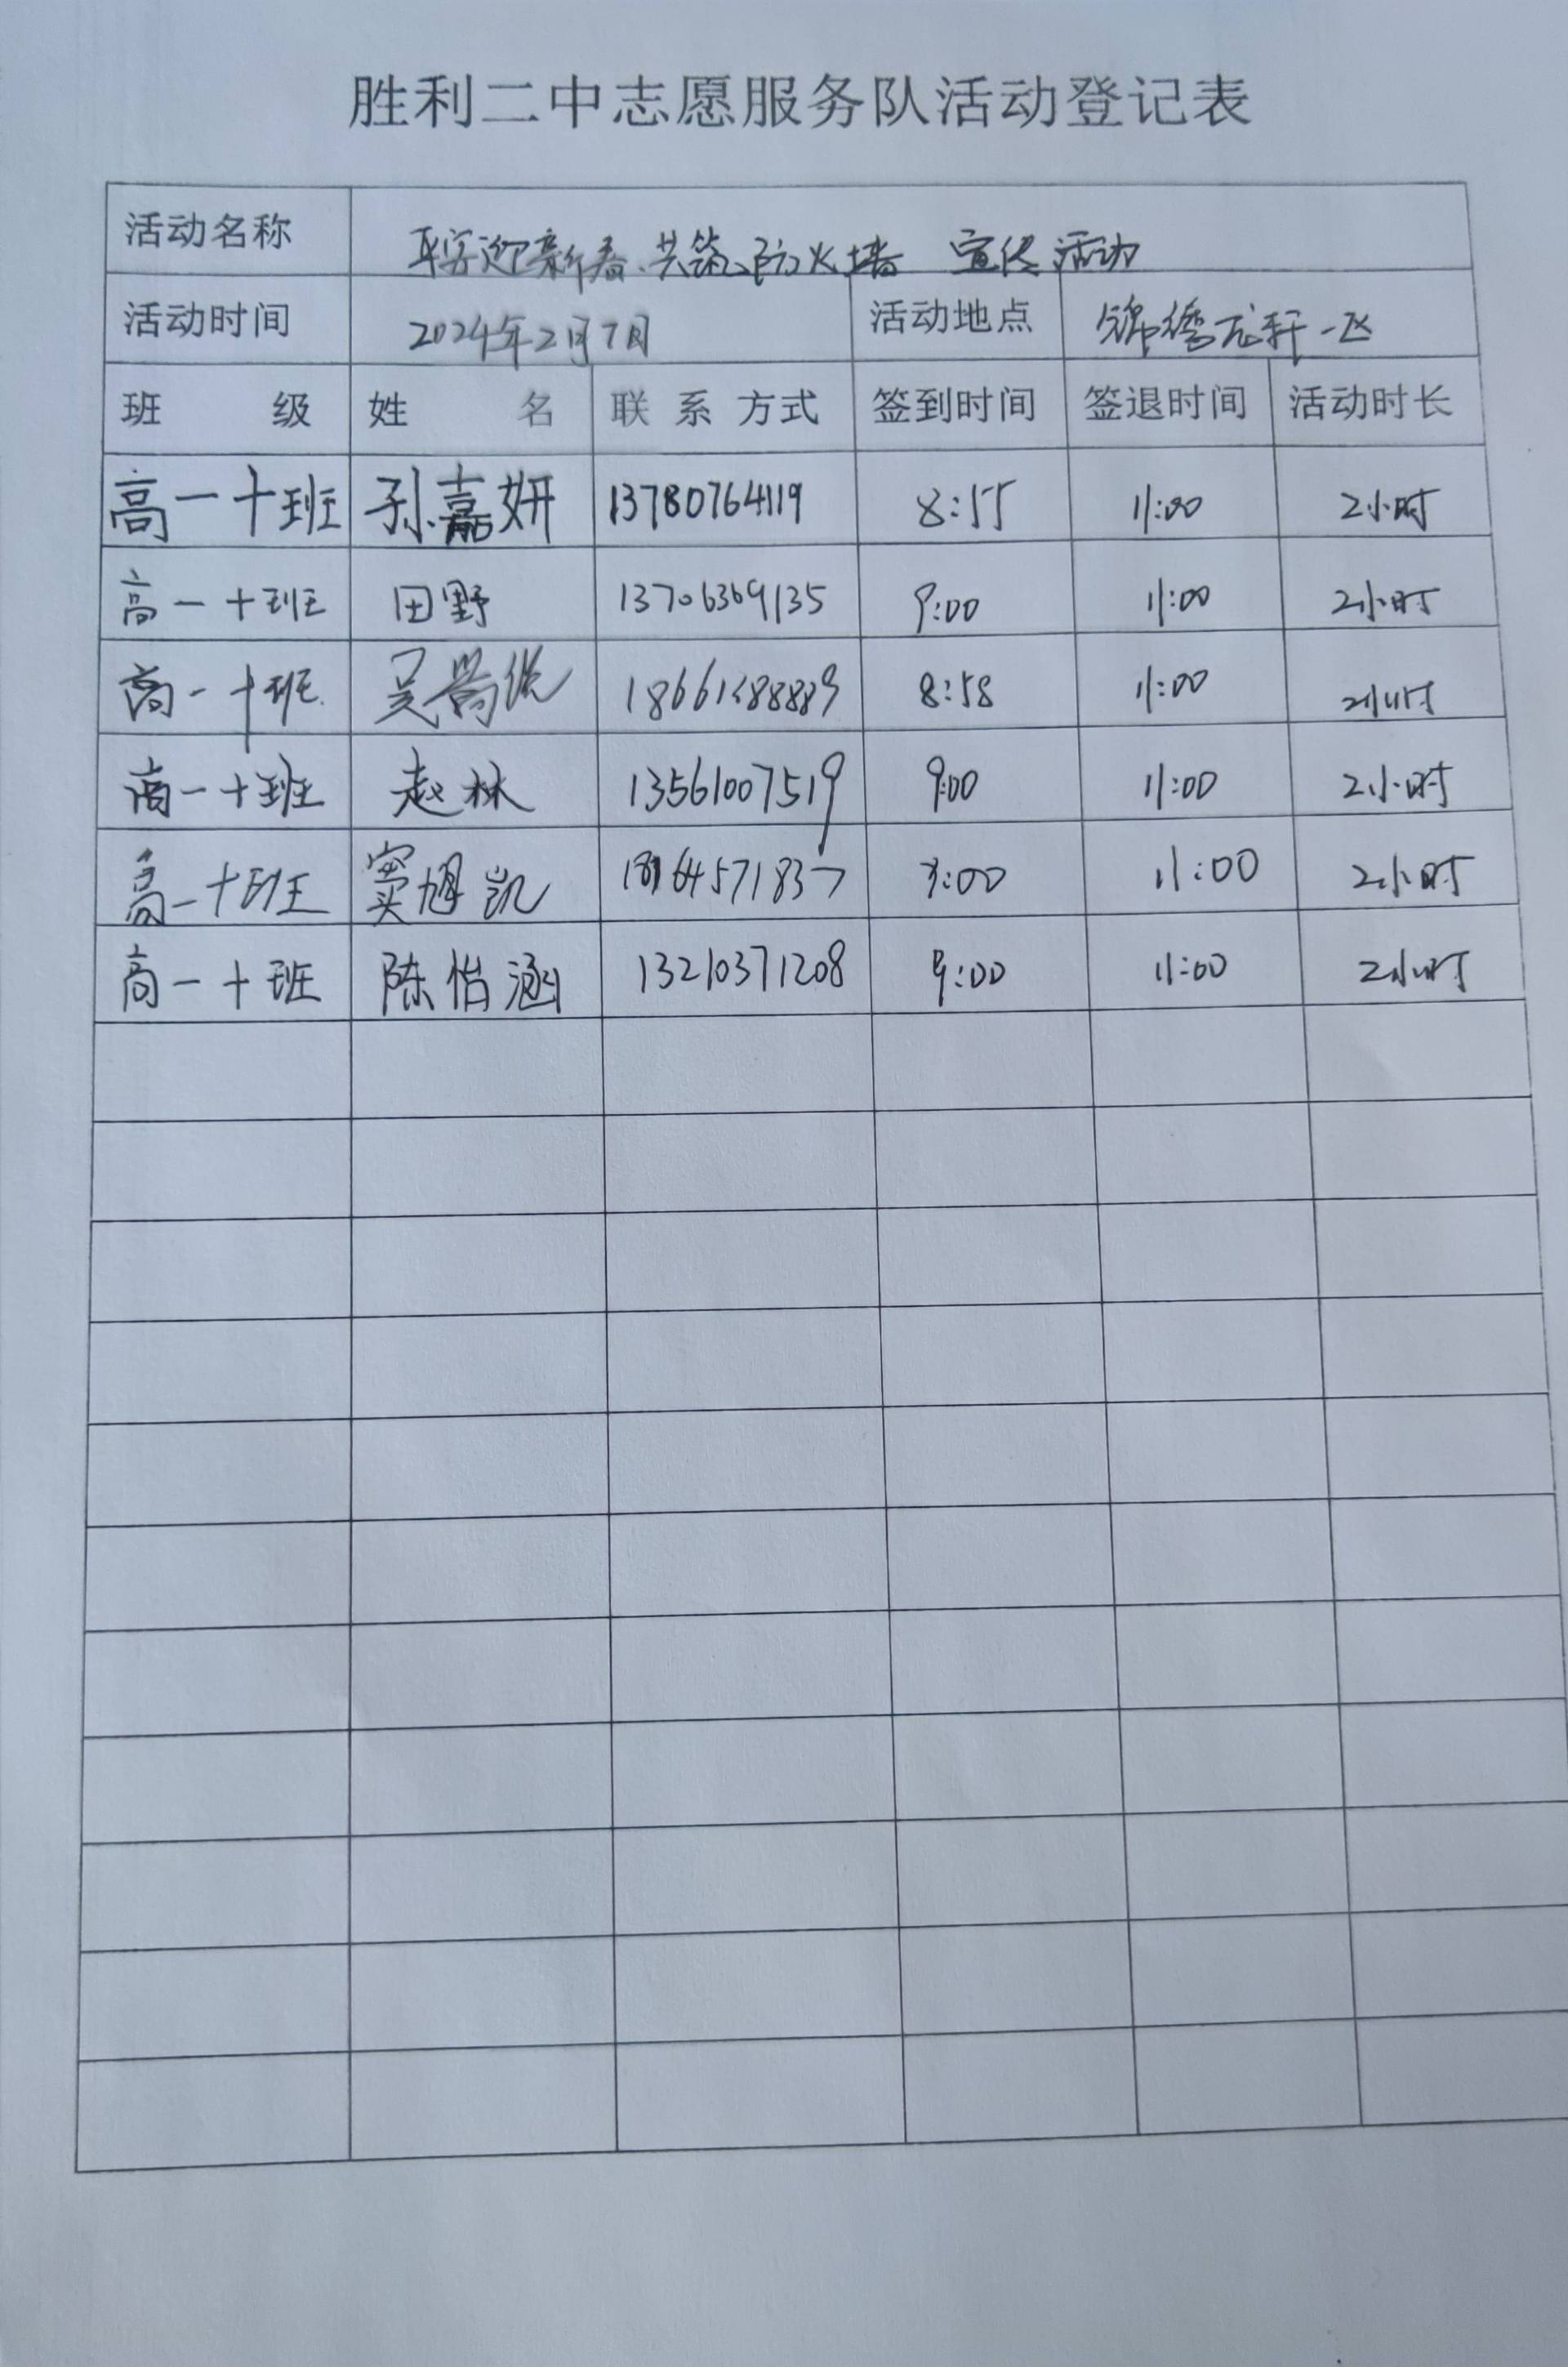 胜利二中志愿服务队活动登记表
活动名称 平安迎新春、共筑防火墙 宣传活动
活动时间 2024年2月7日 活动地点 锦绣龙轩一区
班 级 姓 名 联 系 方式 签到时间 签退时间 活动时长
高一十班 孙嘉妍 13780764119 8:55 11:00 2小时
高一十班 田野 13706369135 9:00 11:00 2小时
高一十班 8:58 11:00 2小时
高一十班 赵林 13561007519 9:00 11:00 2小时
高一十班 窦旭凯 9:00 11:00 2小时
高一十班 陈怡涵 13210371208 9:00 11:00 2小时